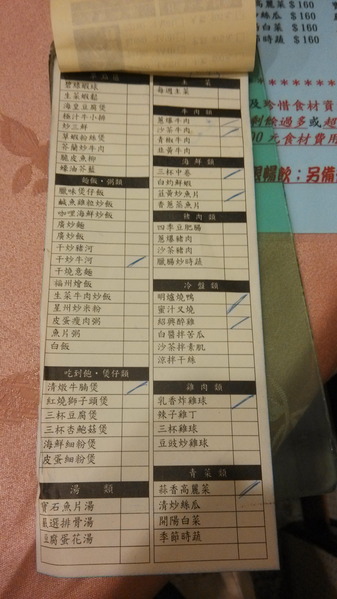 碧綠蝦球
生菜蝦鬆
海皇豆腐煲
柚汁牛小排
炒三鮮
草蝦粉絲煲
芥蘭炒牛肉
脆皮魚柳
蠔油芥藍
麵飯‧粥類
臘味煲仔飯
鹹魚雞粒炒飯
咖哩海鮮炒飯
廣炒麵
廣炒飯
干炒豬河
干炒牛河
干燒意麵
福州燴飯
生菜牛肉炒飯
星州炒米粉
皮蛋瘦肉粥
魚片粥
白飯
吃到飽‧煲仔類
清燉牛腩煲
紅燒獅子頭煲
三杯豆腐煲
三杯杏鮑菇煲
海鮮細粉煲
皮蛋細粉煲
湯 類
寶石魚片湯
嚴選排骨湯
豆腐蛋花湯
主 菜
每週主菜
牛肉類
蔥爆牛肉
沙茶牛肉
青椒牛肉
韭黃牛肉
海鮮類
三杯中卷
白灼鮮蝦
韭黃炒魚片
香蔥蒸魚片
豬肉類
四季豆肥腸
蔥爆豬肉
沙茶豬肉
臘腸炒時蔬
冷盤類
明爐燒鴨
蜜汁叉燒
紹興醉雞
白醬拌苦瓜
沙茶拌素肌
涼拌干絲
雞肉類
乳香炸雞球
辣子雞丁
三杯雞球
豆豉炒雞球
青菜類
蒜香高麗菜
清炒絲瓜
開陽白菜
季節時蔬
高麗菜 $160
炒絲瓜 $160
白菜 $160
節時蔬 $160
及珍惜食材資
剩餘過多或超
00元食材費用